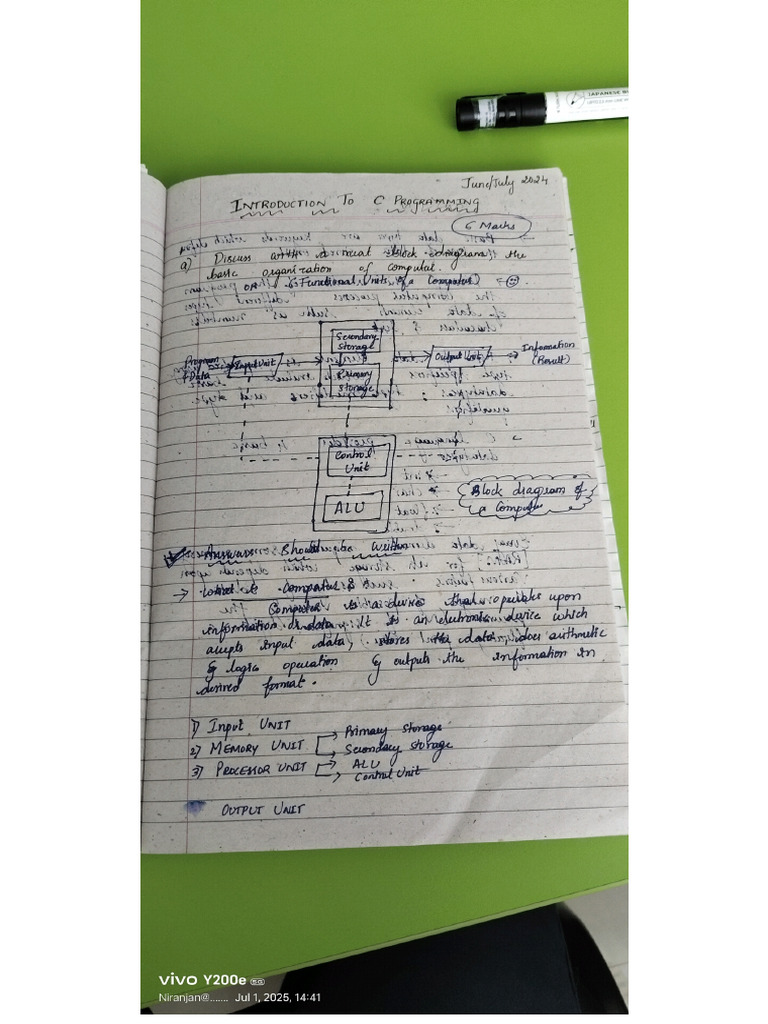 JAPANESE
June/July 2024
INTRODUCTION TO C PROGRAMMING
6 Marks
a) Discuss with a neat block diagram the
basic organization of computer.
OR (Functional Units of a Computer)
Secondary
Storage
Program
& Data
Input Unit
Primary
Storage
Output Unit
Information
(Result)
Control
Unit
ALU
Block diagram of
a Computer
Answer Should be written
→ What is Computer?
Computer is a device that operates upon
information or data. It is an electronic device which
accepts input data, stores the data, does airthmetic
& logic operation & outputs the information in
desired format.
1) INPUT UNIT
2) MEMORY UNIT → Primary Storage
→ Secondary Storage
3) PROCESSOR UNIT → ALU
→ Control Unit
OUTPUT UNIT
vivo Y200e 5G
Niranjan@....... Jul 1, 2025, 14:41